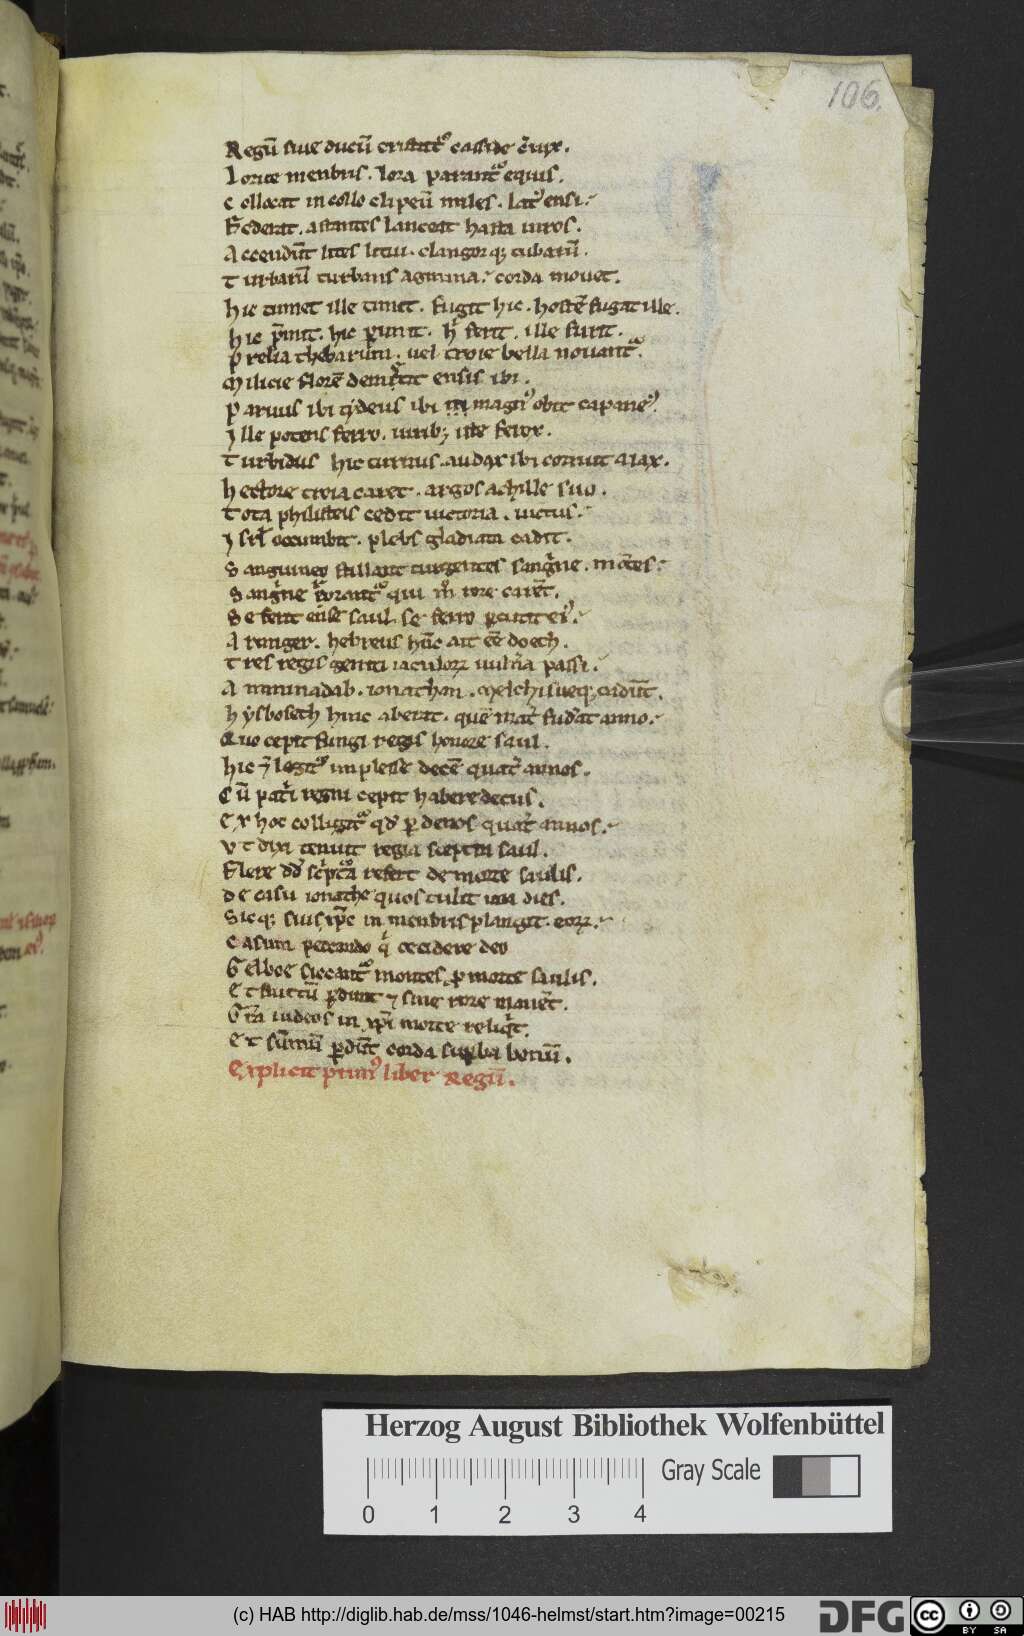 106.
Regū siue ducū cristat᷒ casside c̄uix.
Lorice menbris. lora parant᷒ equis.
Collocat in collo clipeū miles. lat'i ensi.
Federat. astantes lanceat hasta uiros.
Accendūt lites litui. clangorq; tubarū.
Turbarū turbans agmina. corda mouet.
hic tumet ille timet. fugit hic. hostē fugat ille.
hic p̄mit. hic p̱imit. h' ferit. ille furit.
Prelia thebarum. uel troie bella nouant᷒.
Milicie florē demetit ensis ibi.
Paruus ibi tydeus ibi magn᷒ obit capane᷒.
Ille potens ferro. uirib; iste ferox.
Turbidus hic turnus. audax ibi corruit aiax.
hectore troia caret. argos achille suo.
Tota philisteis cedit uictoria. uictus.
Isrl̄ occumbit. plebs gladiata cadit.
Sanguineo stillant turgentes sanguine. mōtes.
Sanguine rorant᷒ qui m̊ rore carēt.
Se ferit ense saul. se ferro p̱cutit ei᷒.
Armiger. hebreus hūc ait eē doech.
Tres regis geniti iaculoꝝ uuln̄a passi.
Aminadab. ionathan. Melchisueq; cadūt.
hysboseth hinc aberat. quē mat' fudat anno.
Quo cepit fungi regis honore saul.
hic ⁊ legit᷒ implesse decē quat' annos.
Cū pat'i regni cepit habere decus.
Ex hoc colligit᷒ qd' p̱ denos quat' annos.
Vt dixi tenuit regia sceptra saul.
Flere dd' sc'pt᷒a refert de morte saulis.
De casu ionathe quos tulit una dies.
Sicq; suis xp̄c in menbris plangit. eoꝝ.
Casum peccando q' cecidere deo
Gelboe siccant᷒ montes p̱ morte saulis.
Et fructū p̱dunt ⁊ siue rore manēt.
Grā iudeos in xp̄i morte reliq't.
Et sūmū p̱dūt corda suꝑba bonū.
Explicit prim᷒ liber Regū.
Herzog August Bibliothek Wolfenbüttel
Gray Scale
0 1 2 3 4
(c) HAB http://diglib.hab.de/mss/1046-helmst/start.htm?image=00215
DFG
cc BY SA